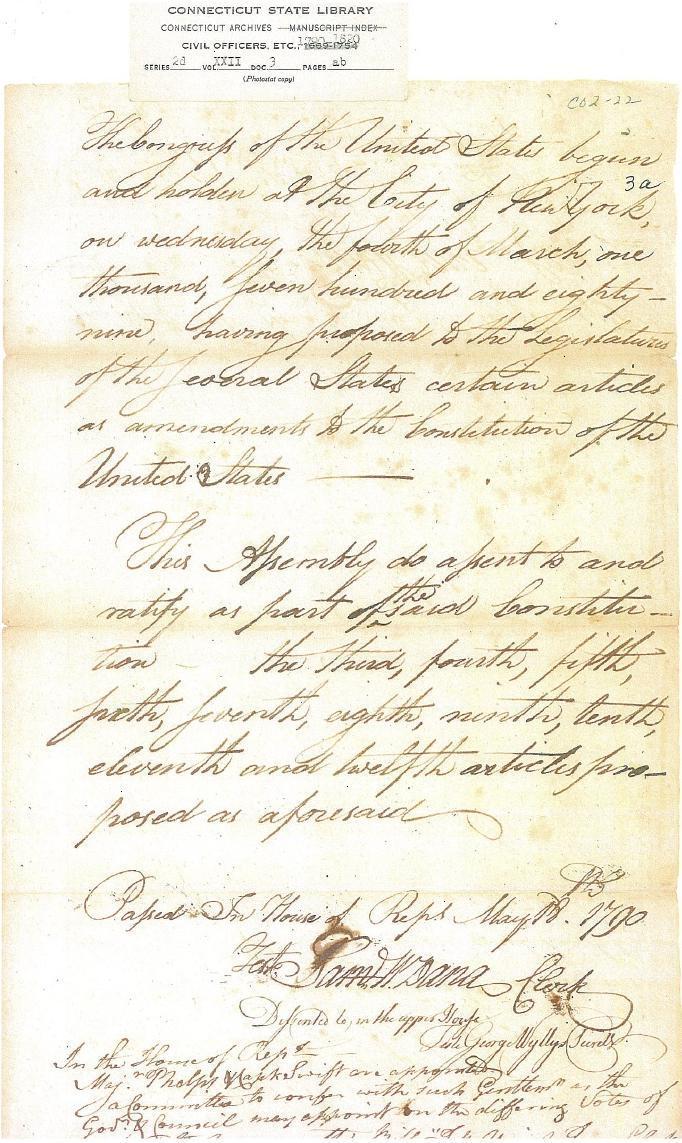 CONNECTICUT STATE LIBRARY
CONNECTICUT ARCHIVES — MANUSCRIPT INDEX
CIVIL OFFICERS, ETC., 1669-1754 1790-1820
SERIES 2d VOL. XXII DOC. 3 PAGES ab
(Photostat copy)
CO2-22
The Congress of the United States begun
3a
and holden at the City of New York,
on wednesday, the fourth of March, one
thousand, seven hundred and eighty-
nine, having proposed to the Legislatures
of the several States certain articles
as amendments to the Constitution of the
United States
This Assembly do assent to and
ratify as part of the said Constitu-
tion the third, fourth, fifth,
sixth, seventh, eighth, ninth, tenth,
eleventh and twelfth articles pro-
posed as aforesaid
Passed In House of Reps May 18. 1790
Test. Sam W Dana Clerk
Dissented to, in the upper House
Test George Wyllys Secrety
In the House of Rept
Maj. Phelps & Swift are appointed
a Committee to confer with such Gentlemn as the
Govr & Council may appoint on the differing Votes of